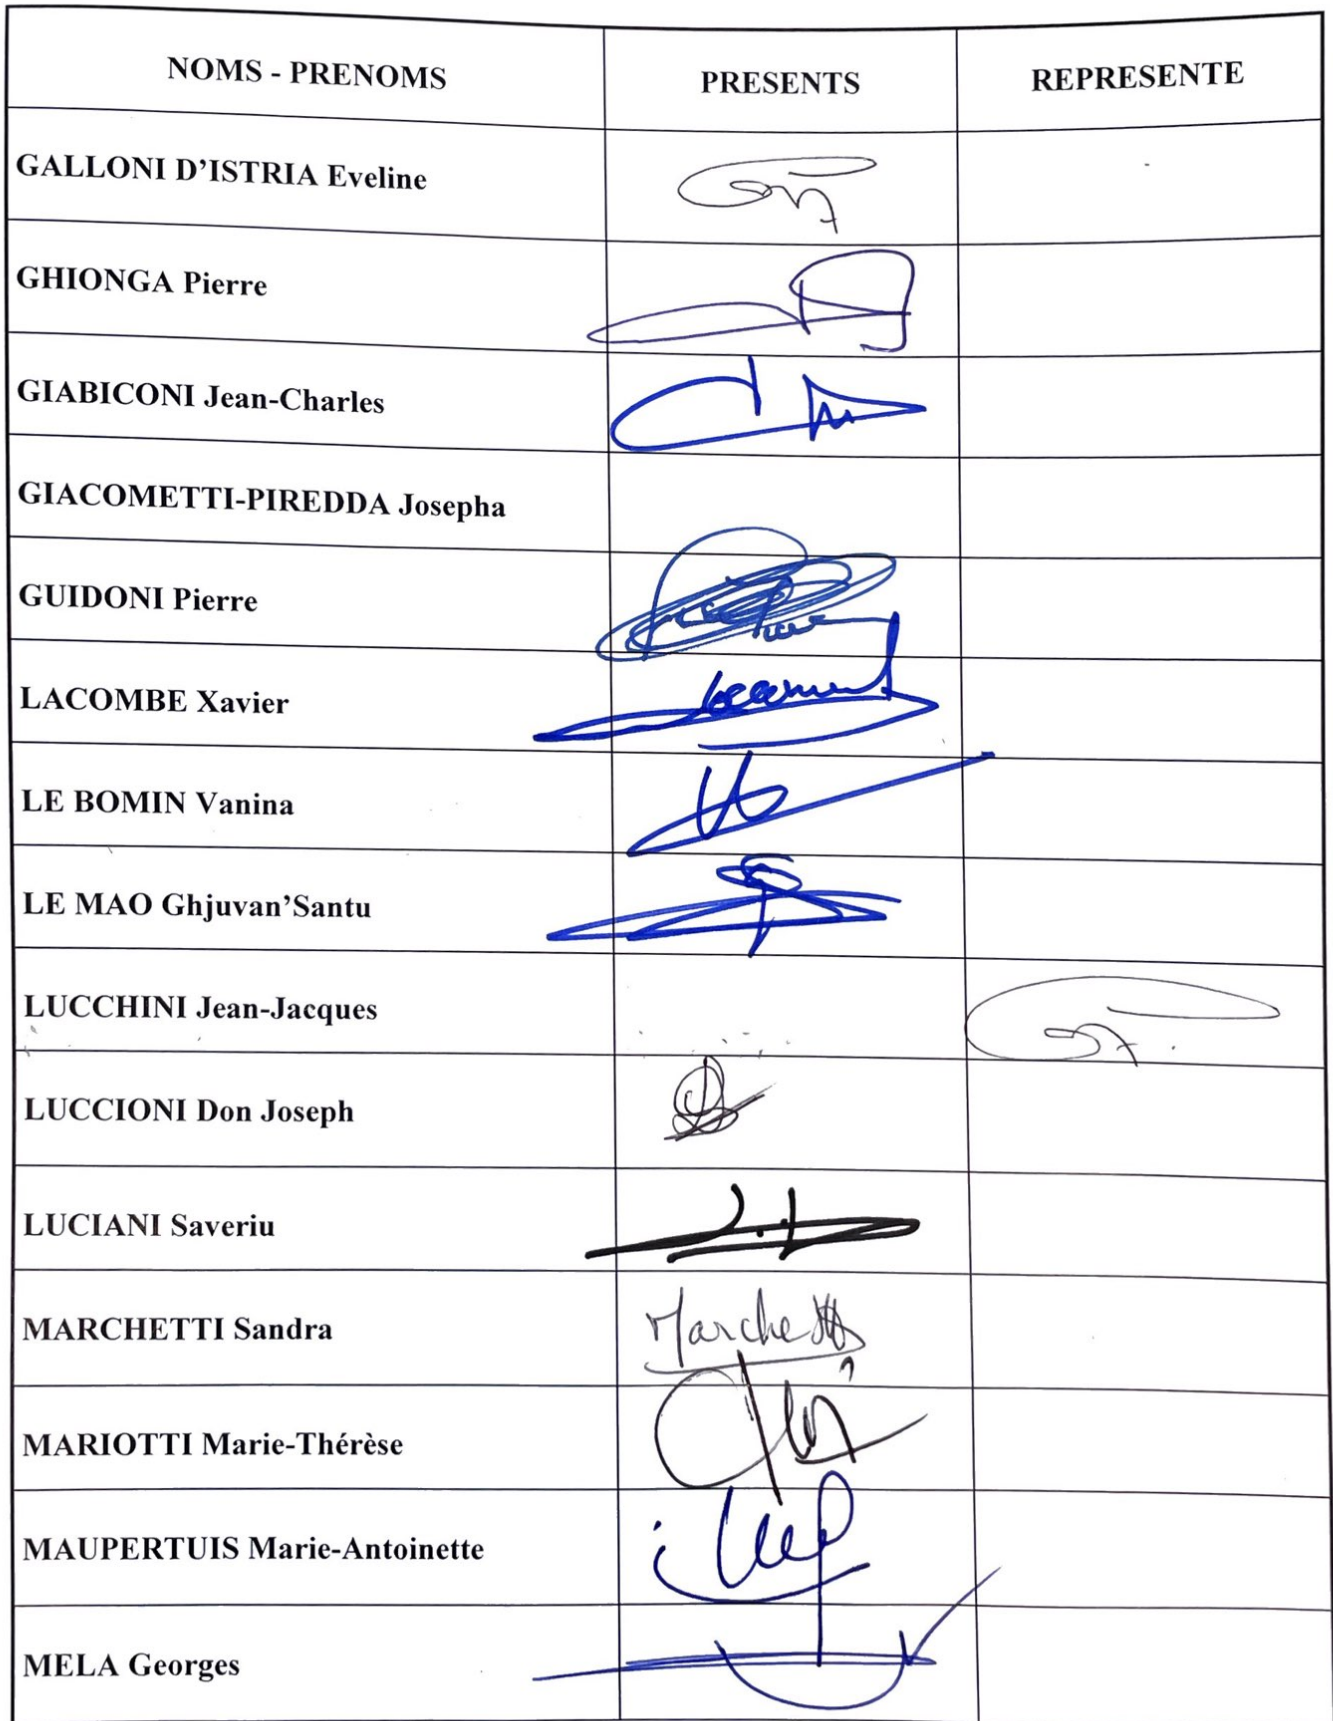 NOMS - PRENOMS PRESENTS REPRESENTE
GALLONI D’ISTRIA Eveline
GHIONGA Pierre
GIABICONI Jean-Charles
GIACOMETTI-PIREDDA Josepha
GUIDONI Pierre
LACOMBE Xavier
LE BOMIN Vanina
LE MAO Ghjuvan’Santu
LUCCHINI Jean-Jacques
LUCCIONI Don Joseph
LUCIANI Saveriu
MARCHETTI Sandra Marchetti
MARIOTTI Marie-Thérèse
MAUPERTUIS Marie-Antoinette
MELA Georges